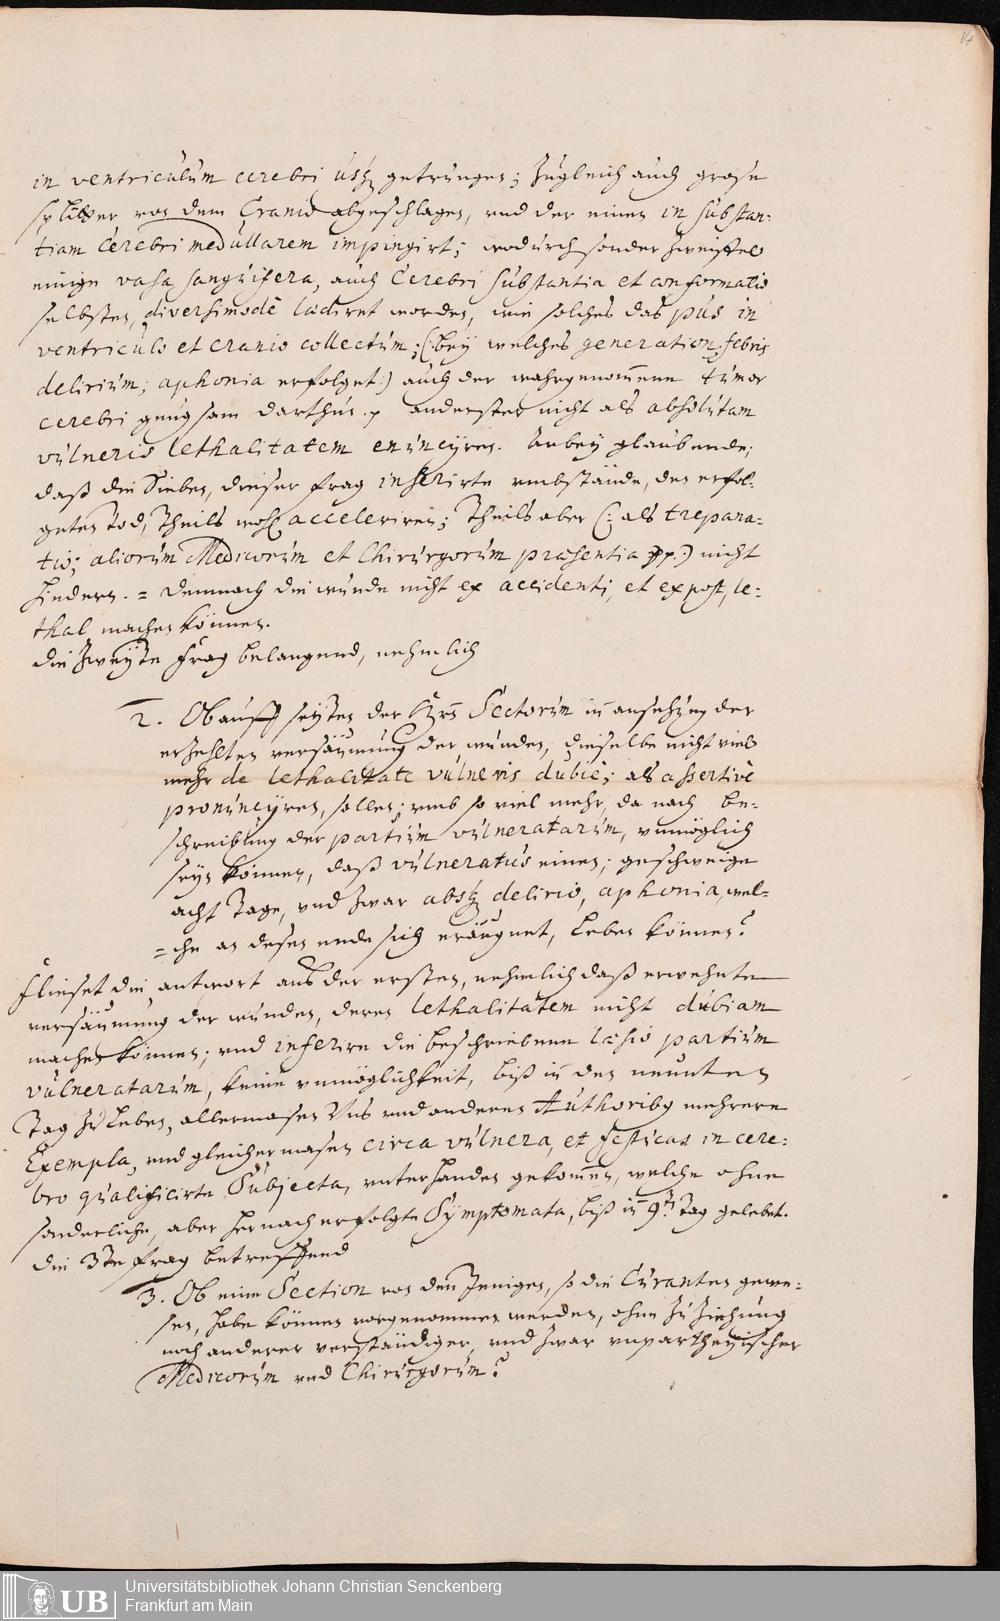 14
in ventriculum cerebri usq getrungen; Zugleich auch grose
splitter von dem Cranio abgeschlagen, und der einen in substan-
tiam cerebri medullarem impingirt; wodurch sonder Zweiffel
einige vasa sanguifera, auch Cerebri substantia et conformatio
selbsten, diversimodè lædiret worden, wie solches das pus in
ventriculo et cranio collectum; (: bey welches generation, febris
delirium; aphonia erfolget :) auch der wahrgenom̄ene tumor
cerebri gnugsam darthun. p anderster nicht als absolutam
vulneris lethalitatem enuncyren. Anbey glaubende;
daß die Sieben, dieser frag inserirte umbstände, den erfol-
geten Tod, Theils wohl acceleriren; Theils aber (: als trepana-
tio; aliorum Medicorum et Chirurgorum præsentia pp :) nicht
hindern. = demnach die wunde nicht ex accidenti, et ex post, le-
thal machen können.
die Zweyte frag belangend, nehmlich
2. Ob auff seyten der Hrn Sectorum in ansehung der
erzehlten versäumung der wunden, dieselbe nicht viel
mehr de lethalitate vulneris dubiè; als assertivè
pronuncyren, sollen; umb so viel mehr, da nach be-
schreibung der partium vulneratarum, unmöglich
seyn können, daß vulneratus einen; geschweige
acht Tage, und zwar absq delirio, aphonia, wel-
=che an desen ende sich eräugnet, leben können?
Flieset die antwort aus der ersten, nehmlich daß erwehnte
versäumung der wunden, deren lethalitatem nicht dubiam
machen können; und inferire die beschriebene læsio partium
vulneratarum, keine unmöglichkeit, biß in den neunten
Tag zu leben, allermasen Uns und anderen Authoribq mehrere
Exempla, und gleichermasen circa vulnera, et in cere-
bro qualificirte Subjecta, unterhanden gekom̄en, welche ohne
sonderliche, aber hernach erfolgte Symptomata, biß in 9ᵗⁿ Tag gelebet.
die 3te frag betreffend
3. Ob eine Section von den Jenigen, so die Curanten gewe-
sen, habe können vorgenommen werden, ohne Zuziehung
noch anderer verständiger, und zwar unpartheyischer
Medicorum und Chirurgorum?
UB
Universitätsbibliothek Johann Christian Senckenberg
Frankfurt am Main